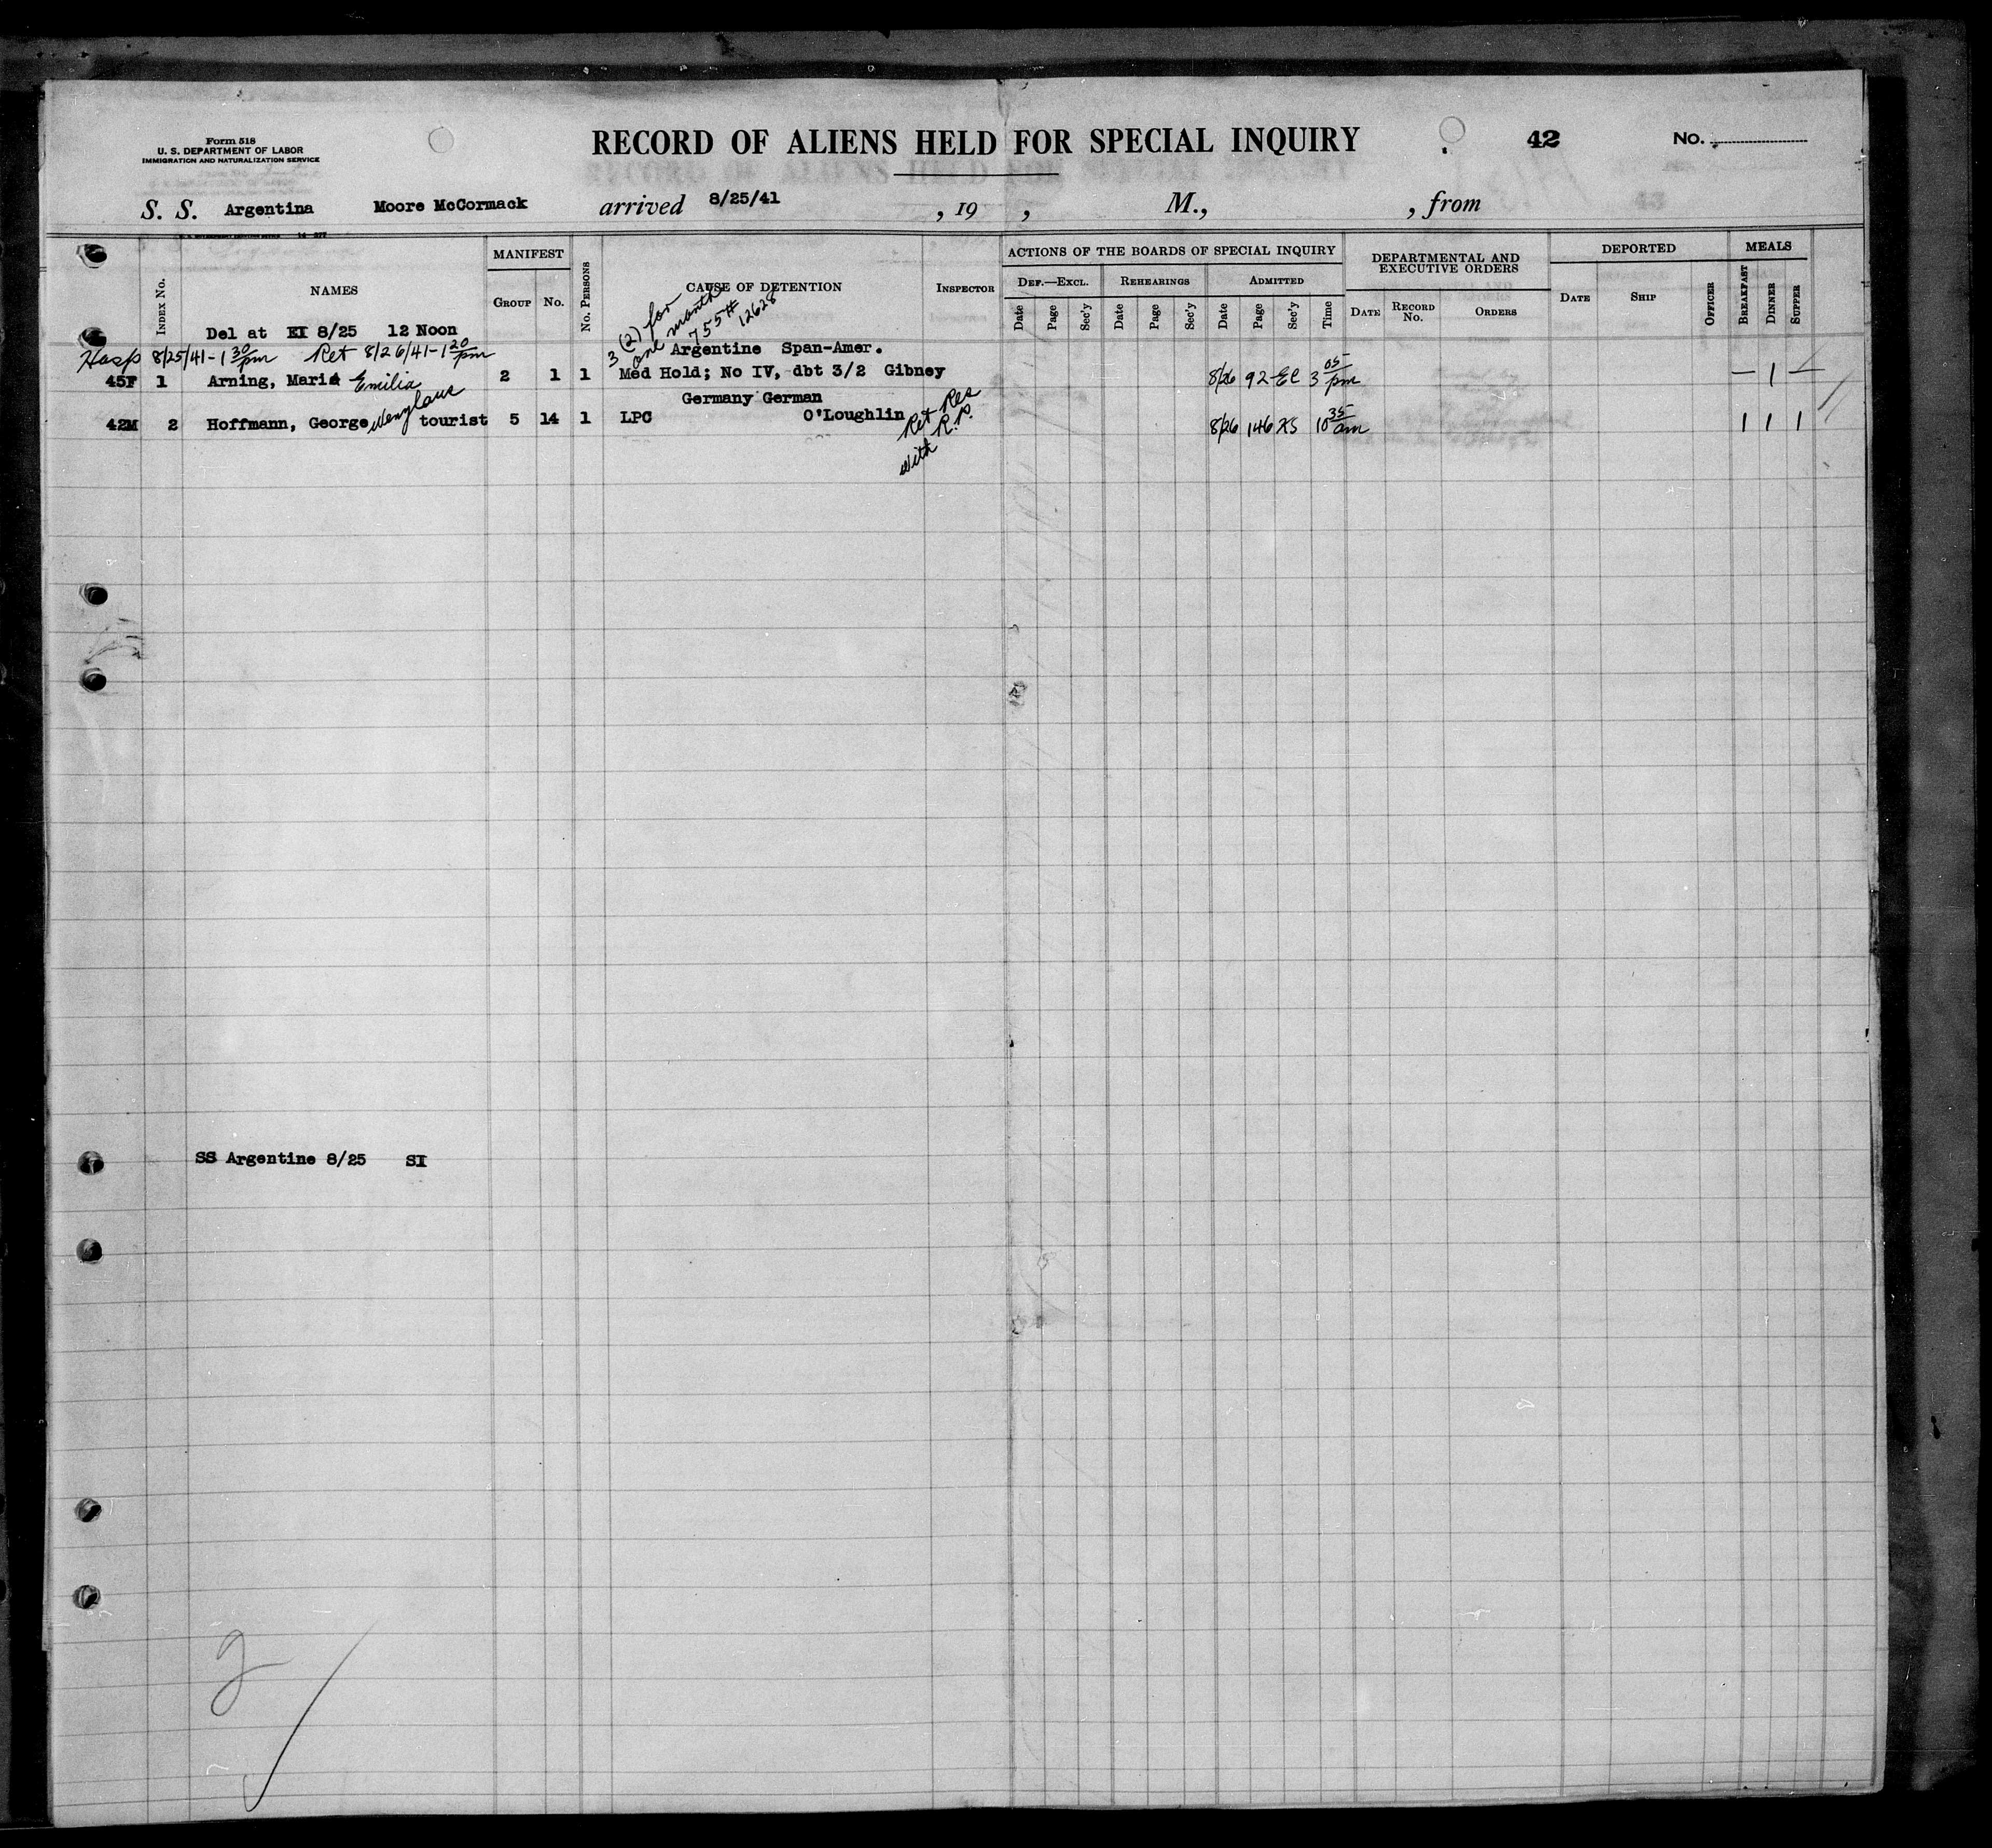 Form 518
U. S. DEPARTMENT OF LABOR
IMMIGRATION AND NATURALIZATION SERVICE
RECORD OF ALIENS HELD FOR SPECIAL INQUIRY
42
No.
S. S. Argentina Moore McCormack arrived 8/25/41 , 19 , M., , from
INDEX No.
NAMES
MANIFEST
GROUP No.
No. PERSONS
CAUSE OF DETENTION
INSPECTOR
ACTIONS OF THE BOARDS OF SPECIAL INQUIRY
DEF.—EXCL. REHEARINGS ADMITTED
Date Page Sec'y Date Page Sec'y Date Page Sec'y Time
DEPARTMENTAL AND
EXECUTIVE ORDERS
DATE RECORD No. ORDERS
DEPORTED
DATE SHIP OFFICER
MEALS
BREAKFAST DINNER SUPPER
Del at EI 8/25 12 Noon
3 (2) for
one month
755#
12628
Hosp 8/25/41-1 30/pm Ret 8/26/41-1 20/pm
Argentine Span-Amer.
45F 1 Arning, Maria Emilia 2 1 1 Med Hold; No IV, dbt 3/2 Gibney 8/26 92 EC 3 05/pm — 1 —
Germany German
42M 2 Hoffmann, George tourist 5 14 1 LPC O'Loughlin 8/26 146 10 35/am 1 1 1
Ret Res
with R.P.
SS Argentine 8/25 SI
2